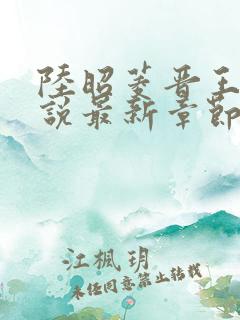 陸昭菱晋王
說最新章節
江楓玥
未任同意禁止轉載